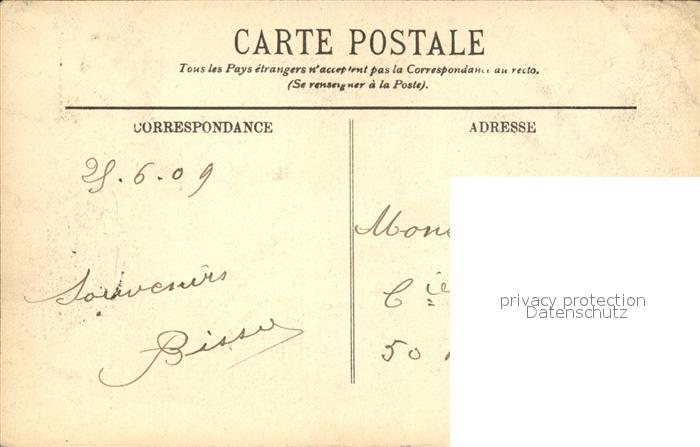 CARTE POSTALE
Tous les Pays étrangers n'acceptent pas la Correspondance au recto.
(Se renseigner à la Poste).
CORRESPONDANCE
ADRESSE
25.6.09
Souvenirs
Mons
Cie
50
privacy protection
Datenschutz